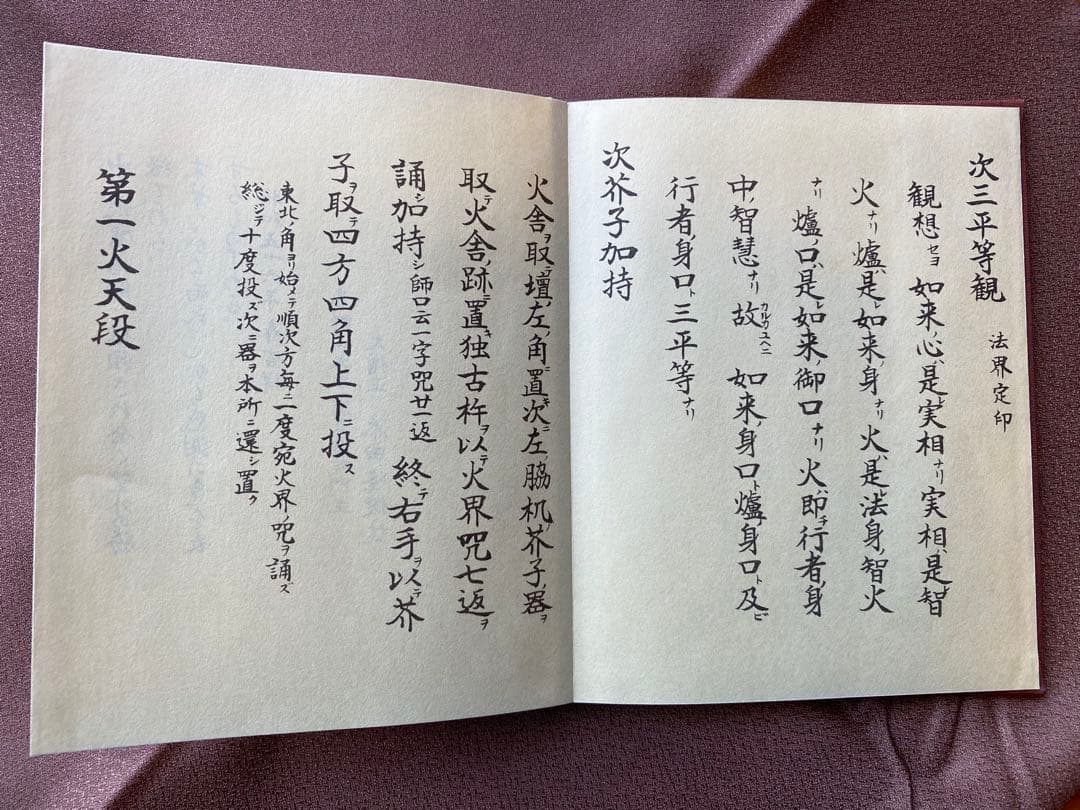 次三平等観 法界定印
観想セヨ如来ノ心ハ是レ実相ナリ実相ハ是レ智
火ナリ爐ハ是レ如来ノ身ナリ火ハ是レ法身ノ智火
ナリ爐ノ口ハ是レ如来ノ御口ナリ火ハ即チ行者ノ身
中ノ智慧ナリ故カルガユヘニ如来ノ身口ト爐ノ身口ト及ビ
行者ノ身口ト三平等ナリ
次芥子加持
火舎ヲ取テ壇ノ左ノ角ニ置キ次ニ左ノ脇机ノ芥子ノ器ヲ
取テ火舎ノ跡ニ置キ独古杵ヲ以テ火界呪七返ヲ
誦シ加持シ師口云一字呪廿一返 終テ右手ヲ以テ芥
子ヲ取テ四方四角上下ニ投ス
東北ノ角ヨリ始メテ順次方毎ニ一度宛火界ノ呪ヲ誦ズ
総ジテ十度投ズ次ニ器ヲ本所ニ還シ置ク
第一火天段